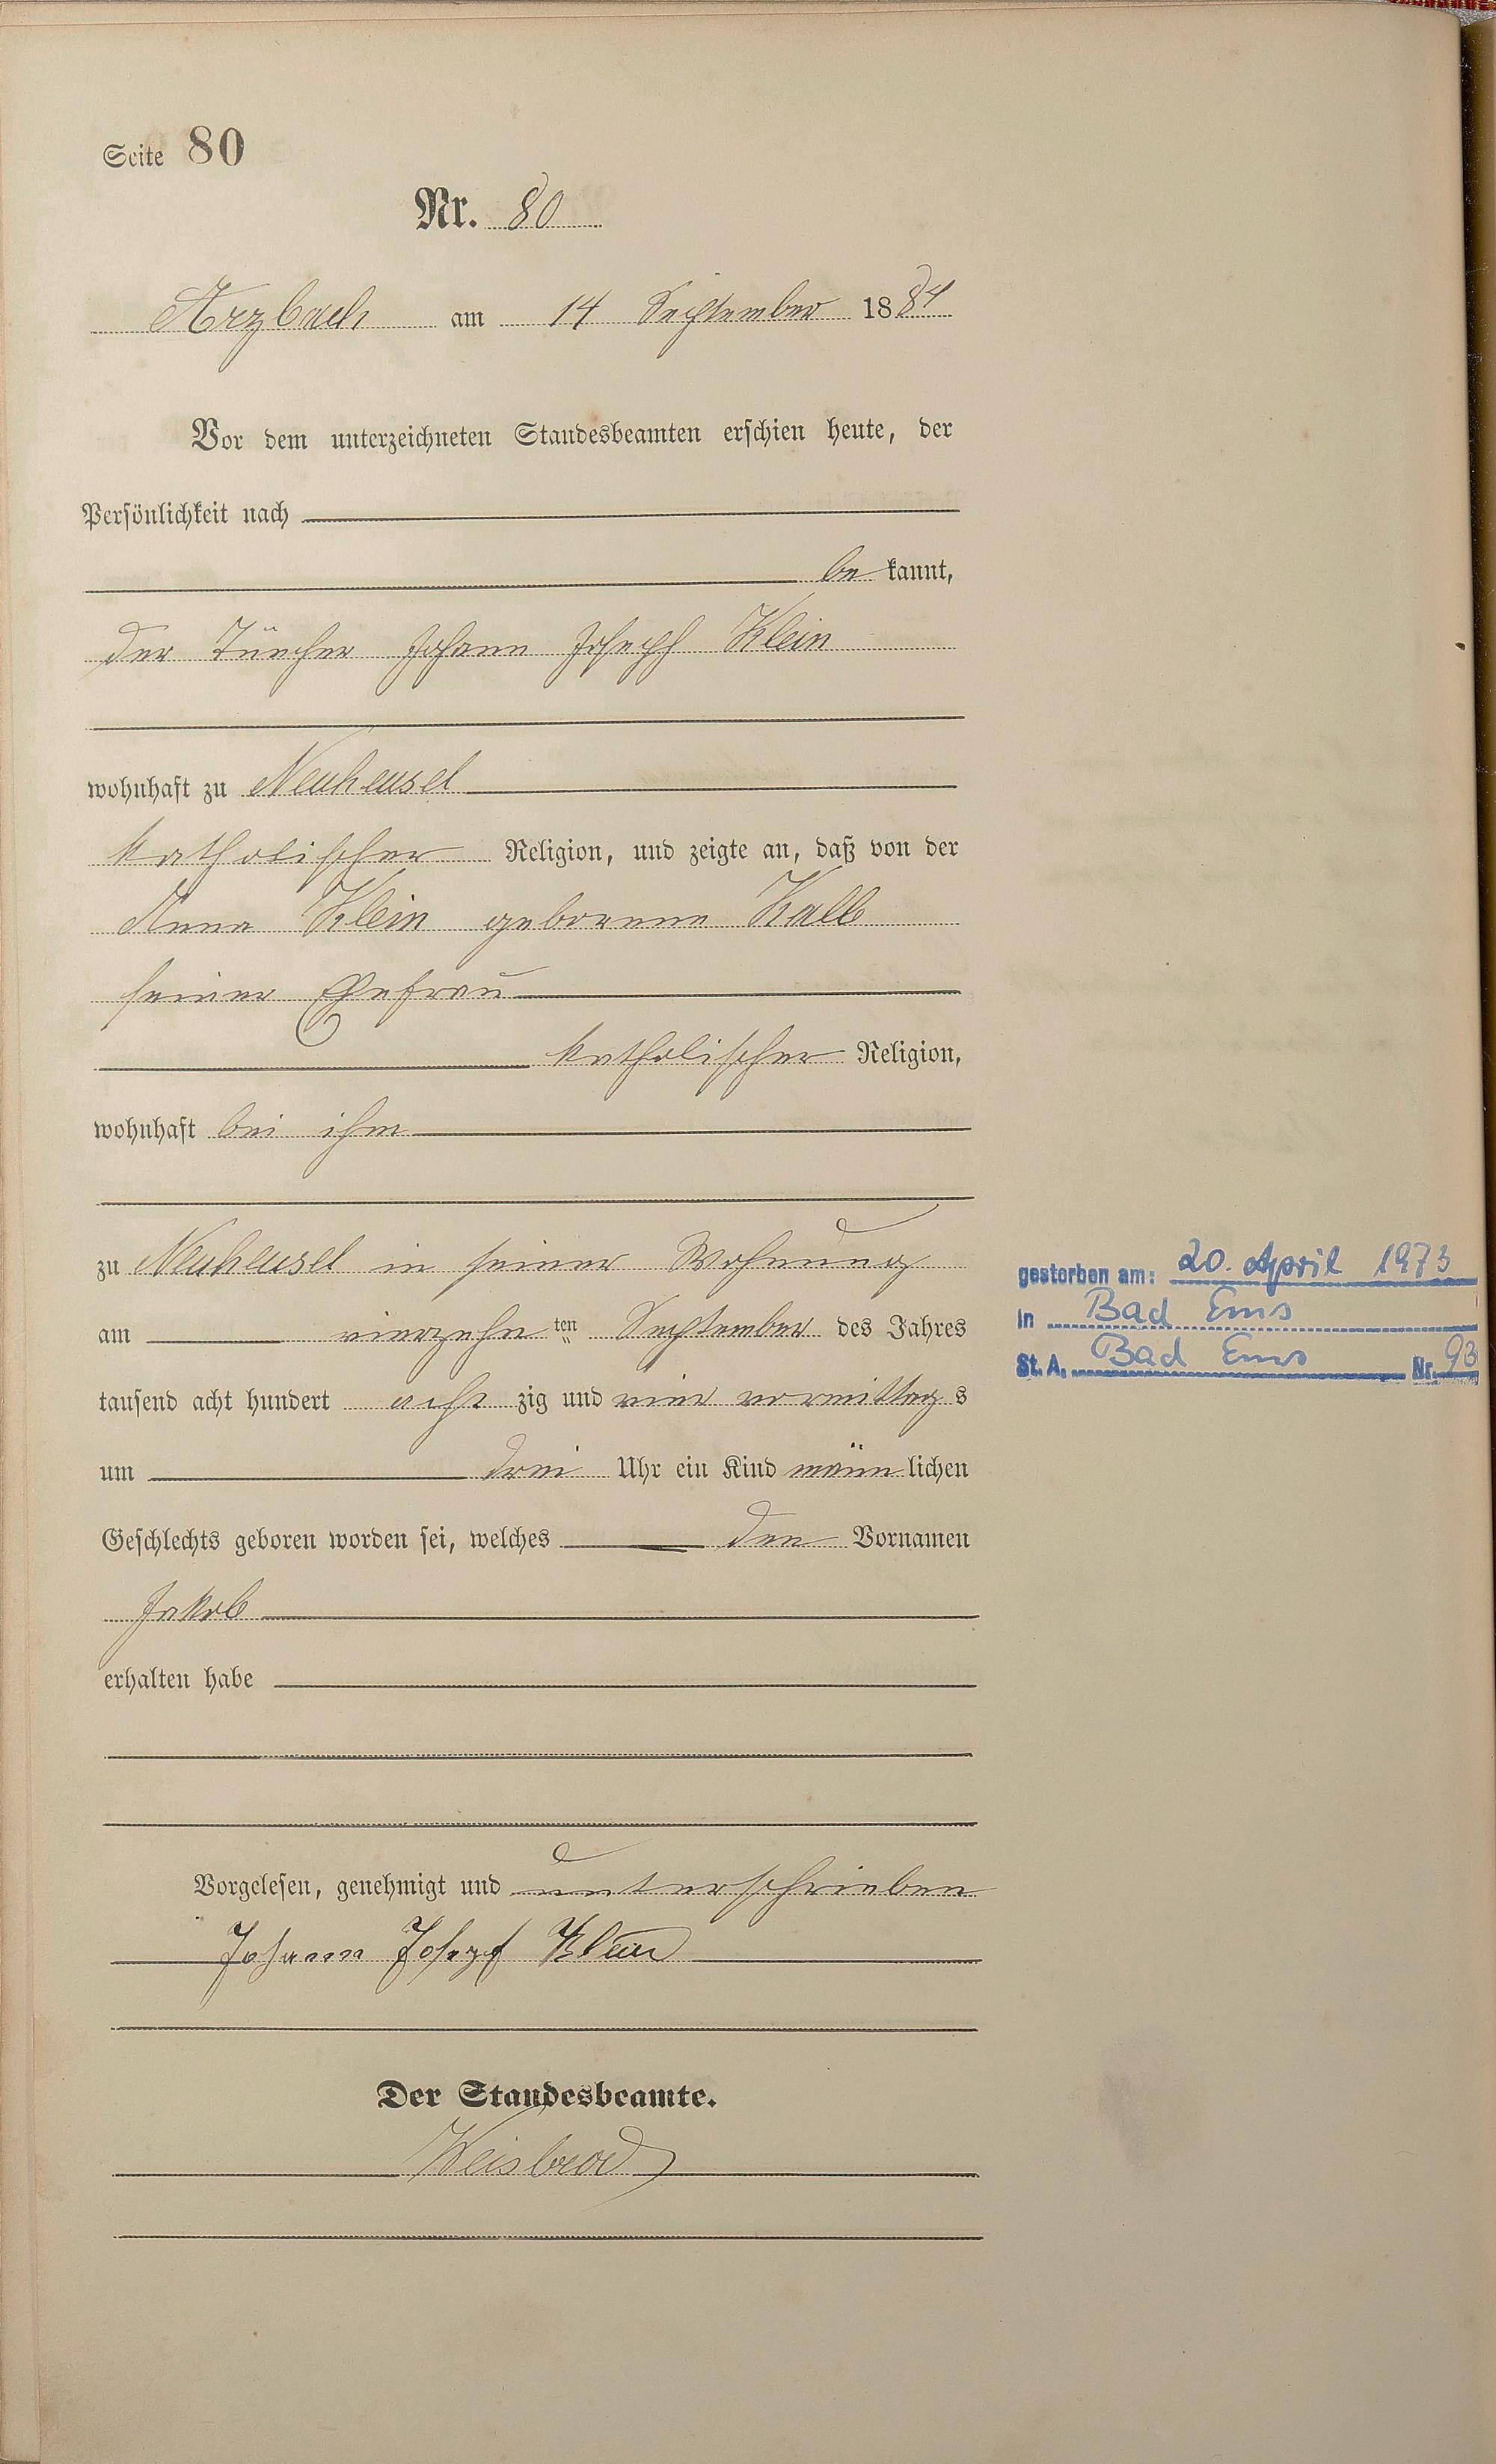 Seite 80
Nr. 80
Arzbach am 14 September 1884
Vor dem unterzeichneten Standesbeamten erschien heute, der
Persönlichkeit nach
be kannt,
der Tüncher Johann Joseph Klein
wohnhaft zu Neuheusel
katholischer Religion, und zeigte an, daß von der
Anna Klein geborene Kalb
seiner Ehefrau
katholischer Religion,
wohnhaft bei ihm
zu Neuheusel in seiner Wohnung
am vierzehn ten September des Jahres
tausend acht hundert acht zig und vier vormittag s
um drei Uhr ein Kind männ lichen
Geschlechts geboren worden sei, welches den Vornamen
Jakob
erhalten habe
Vorgelesen, genehmigt und unterschrieben
Johann Josepf Klein
Der Standesbeamte.
Weisbrod
gestorben am: 20. April 1973
in Bad Ems
St. A. Bad Ems Nr. 93